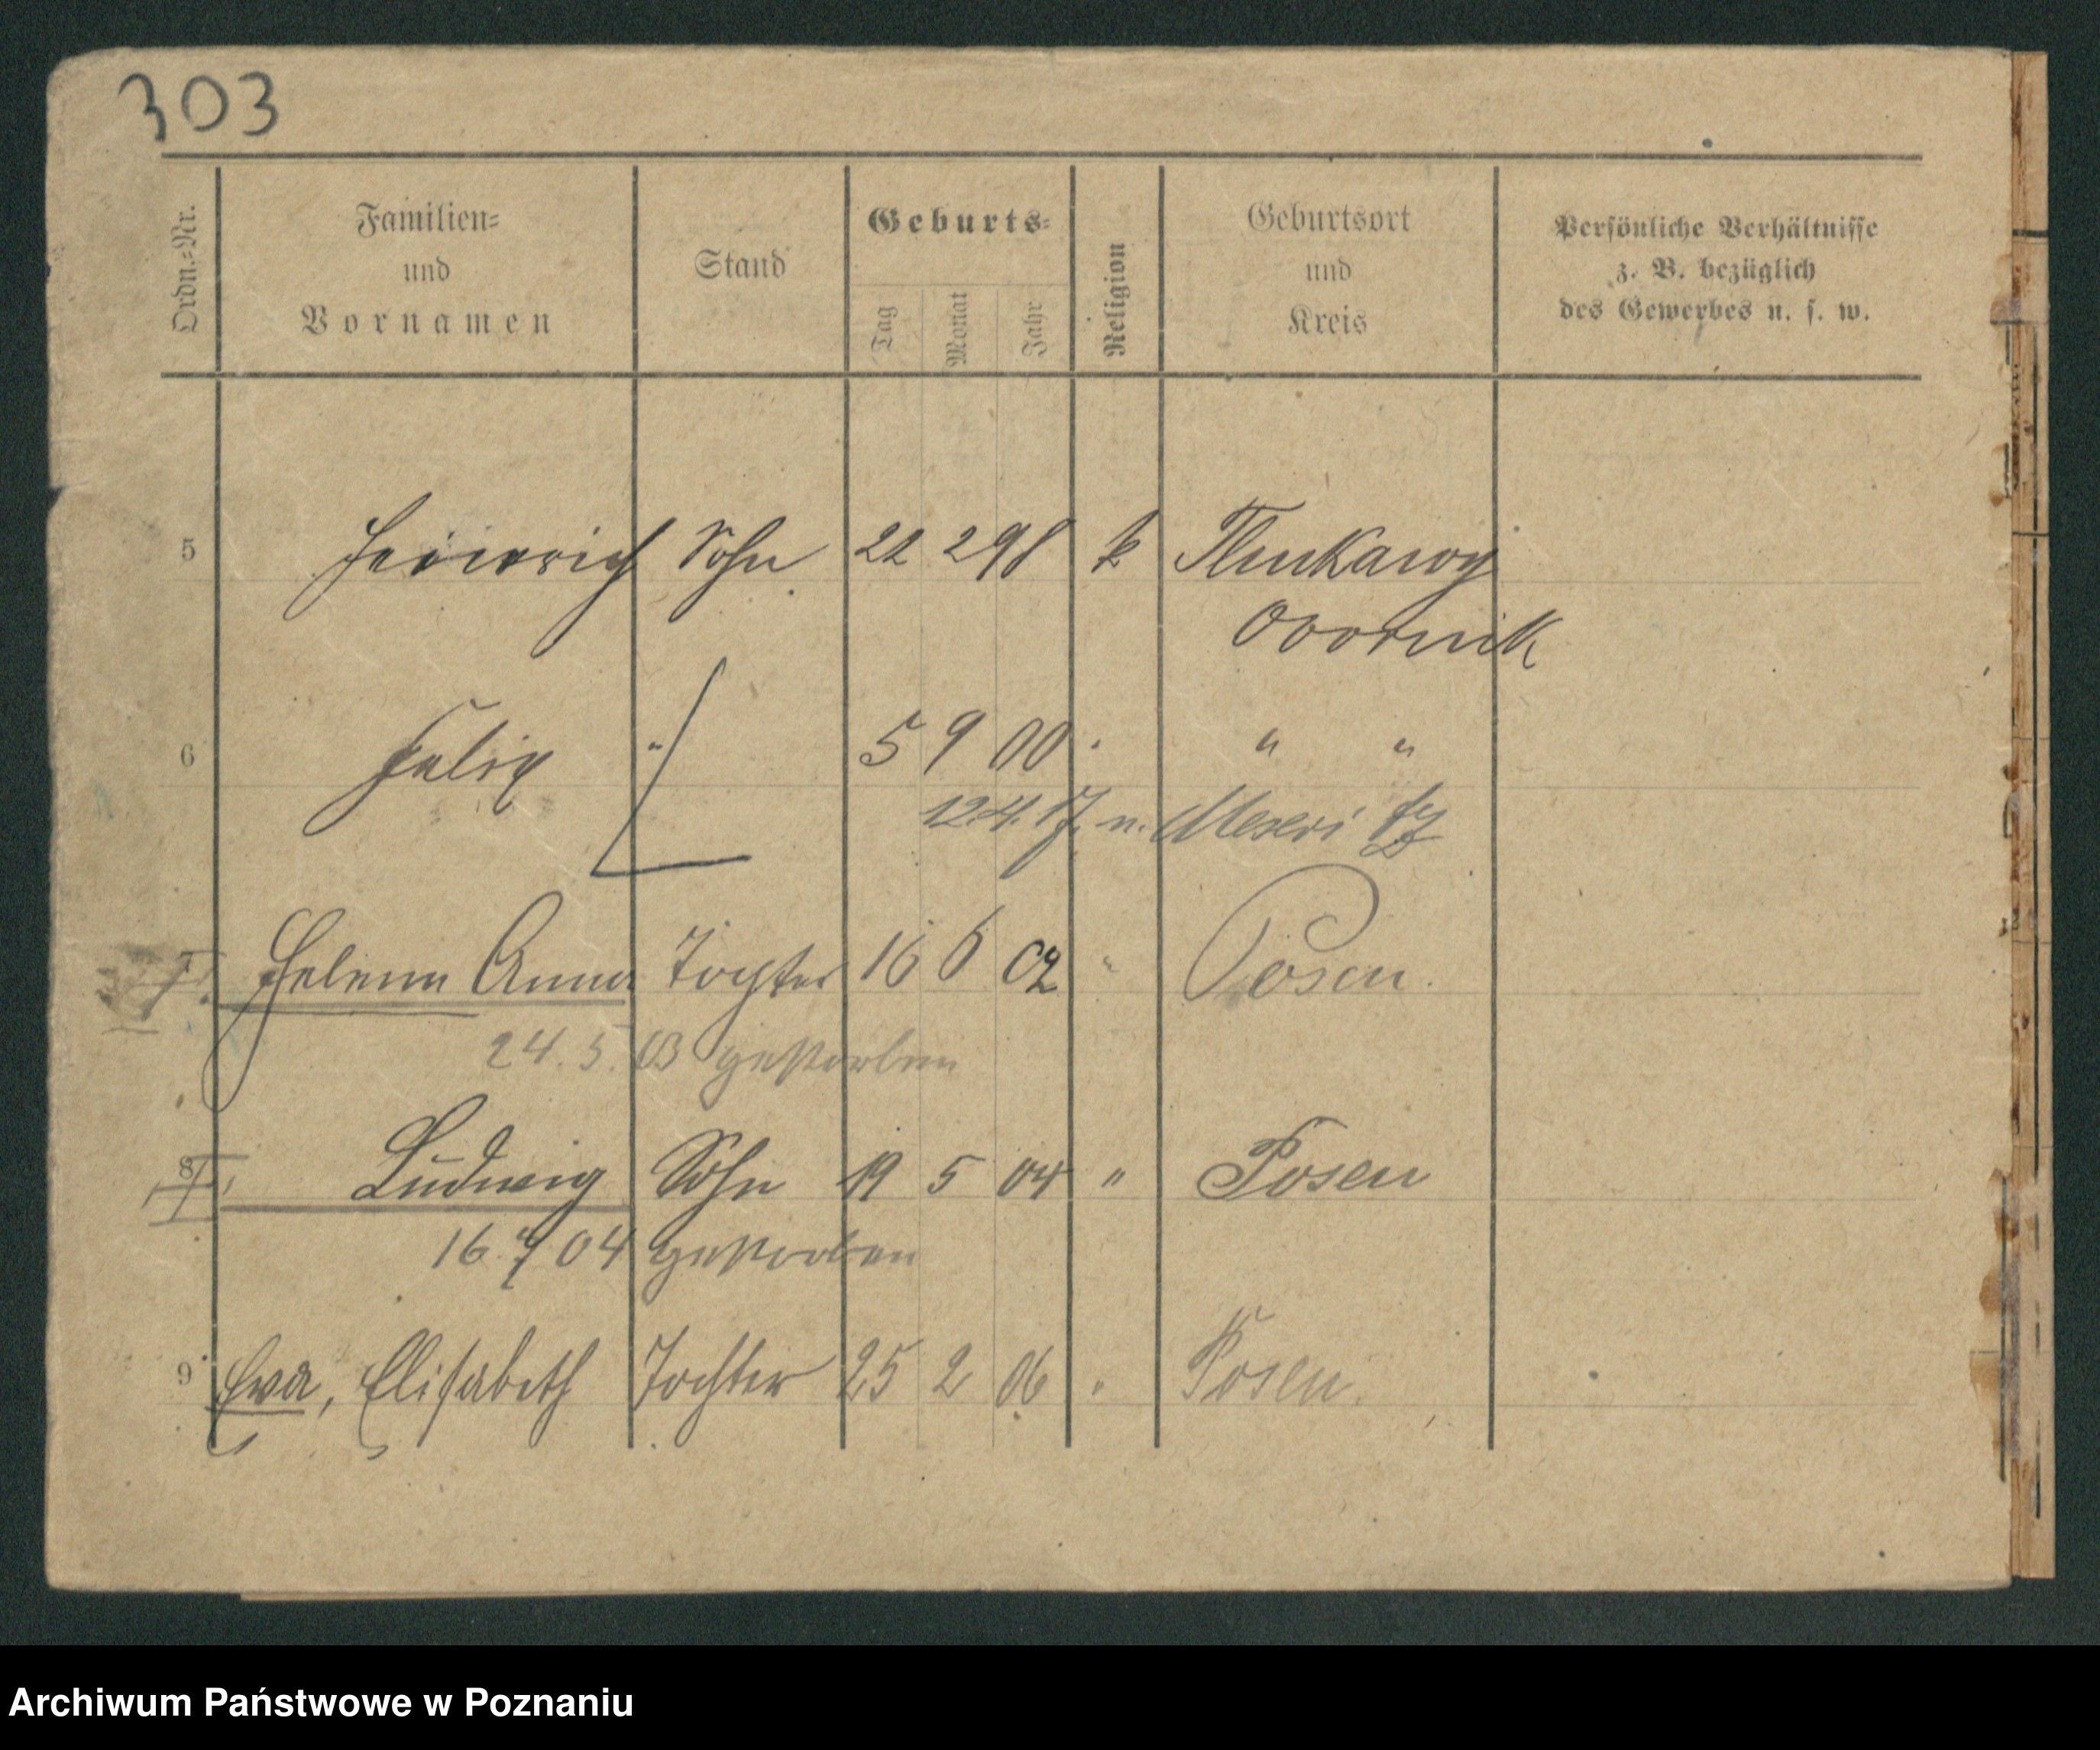 303
Ordn.-Nr. Familien- und Vornamen Stand Geburts- Tag Monat Jahr Religion Geburtsort und Kreis Persönliche Verhältnisse z. B. bezüglich des Gewerbes u. s. w.
5 Heinrich Sohn 22 2 98 k Tlukawy
Obornik
6 Felix " 5 9 00 " " "
12.4.17. n. Meseritz
7 Helene Anna Tochter 16 6 02 " Posen.
24. 5. 03 gestorben
8 Ludwig Sohn 19 5 04 " Posen
16. 7 04 gestorben
9 Eva, Elisabeth Tochter 25 2 06 " Posen.
Archiwum Państwowe w Poznaniu